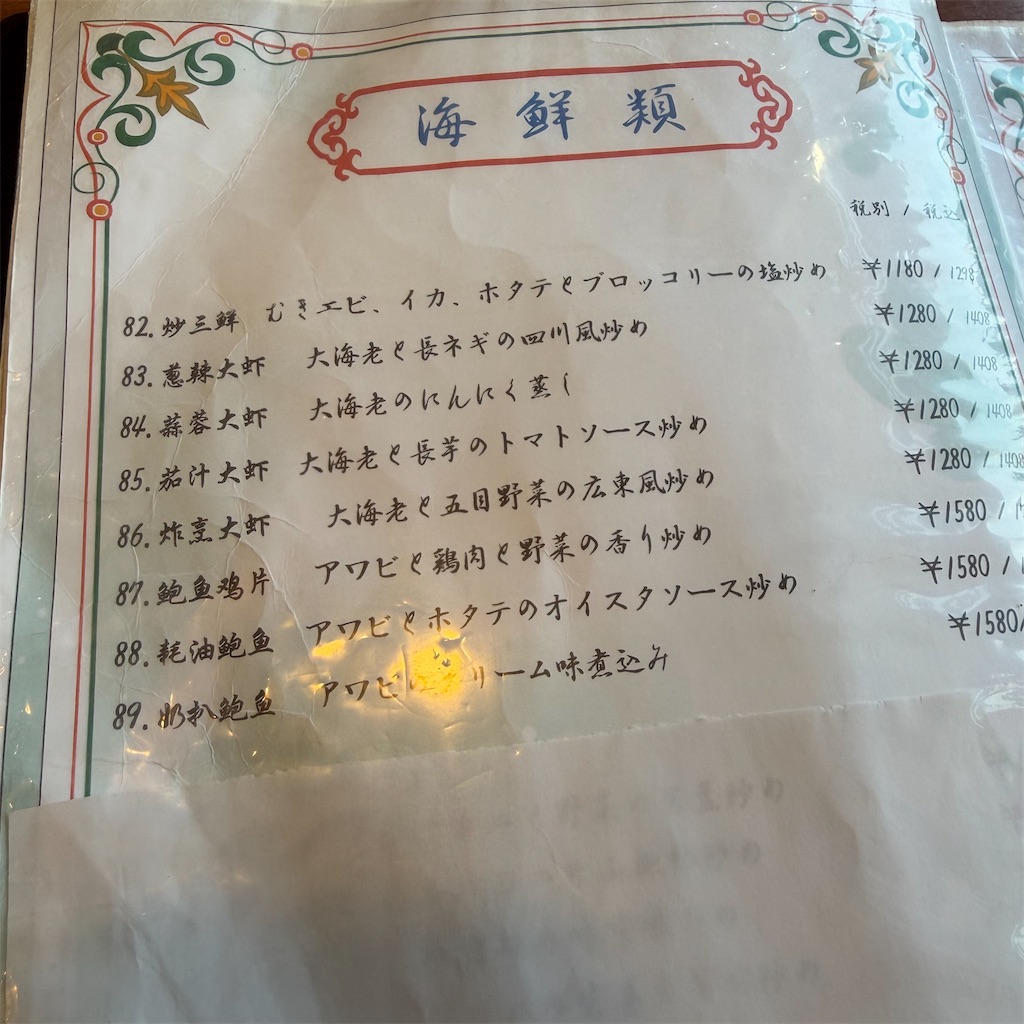 海鮮類
税別 / 税込
82. 炒三鮮 むきエビ、イカ、ホタテとブロッコリーの塩炒め ¥1180 / 1298
83. 葱辣大虾 大海老と長ネギの四川風炒め ¥1280 / 1408
84. 蒜蓉大虾 大海老のにんにく蒸し ¥1280 / 1408
85. 茄汁大虾 大海老と長芋のトマトソース炒め ¥1280 / 1408
86. 炸烹大虾 大海老と五目野菜の広東風炒め ¥1280 / 1408
87. 鲍鱼鸡片 アワビと鶏肉と野菜の香り炒め ¥1580 /
88. 耗油鲍鱼 アワビとホタテのオイスタソース炒め ¥1580 /
89. 奶扒鲍鱼 アワビ リーム味煮込み ¥1580/